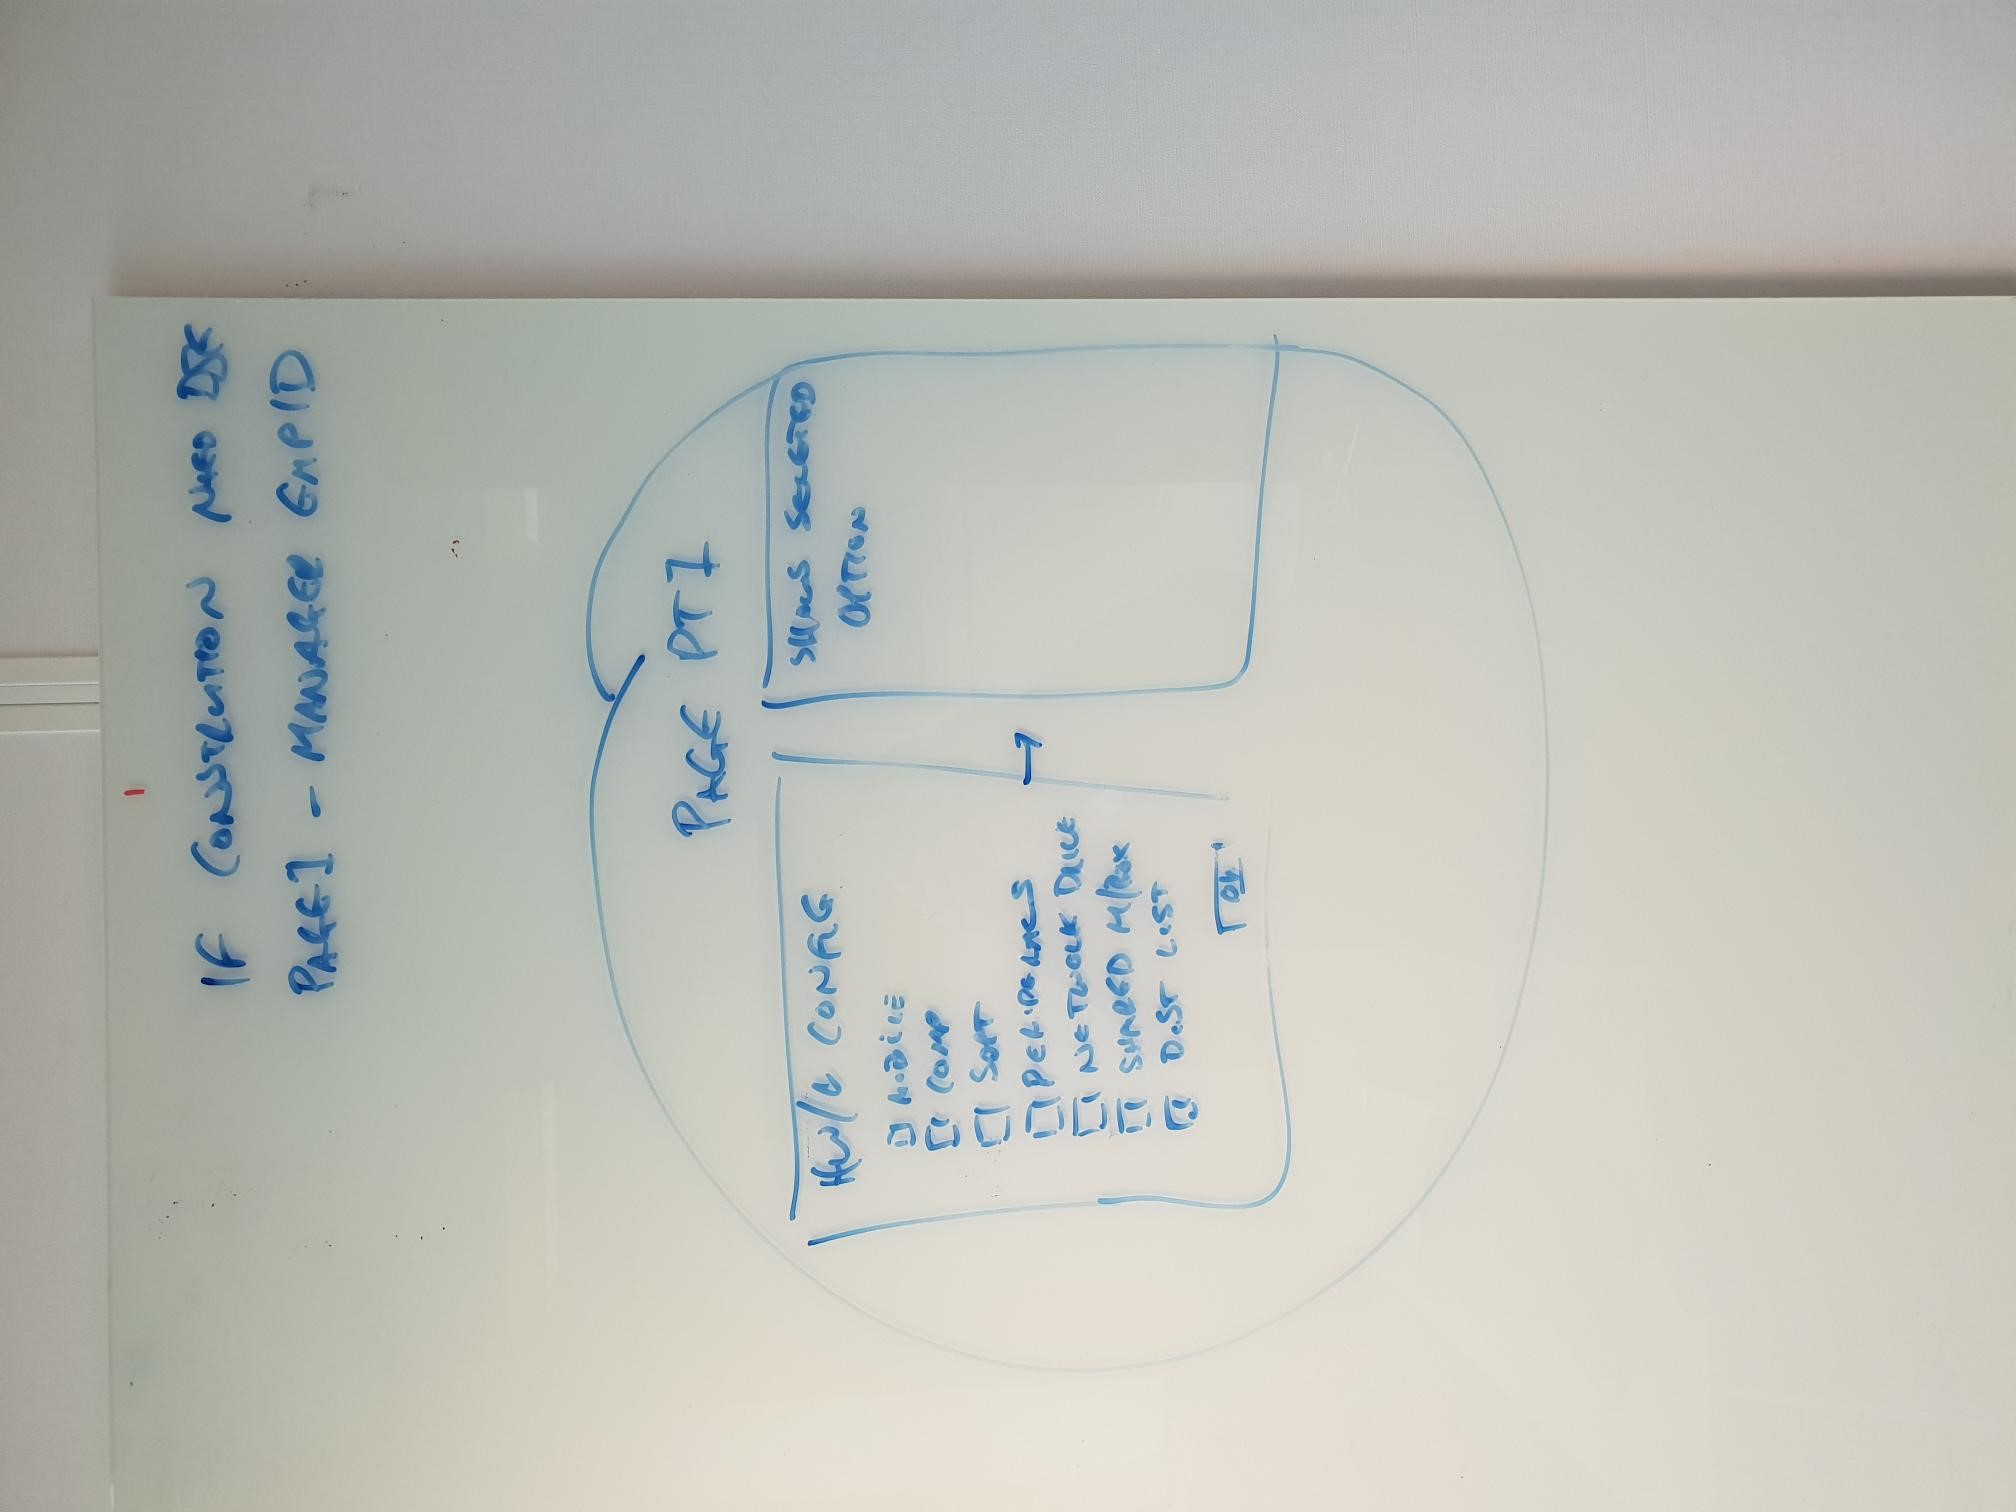 IF CONSTRUCTION NEED DSE
PAGE 1 - MANAGER EMPID
PAGE PT 1
CONFIG
MOBILE
COMP
SOFT
PERIPERALS
NETWORK DRIVE
SHARED M/BOX
DIST LIST
OK
SHOWS SELECTED
OPTION